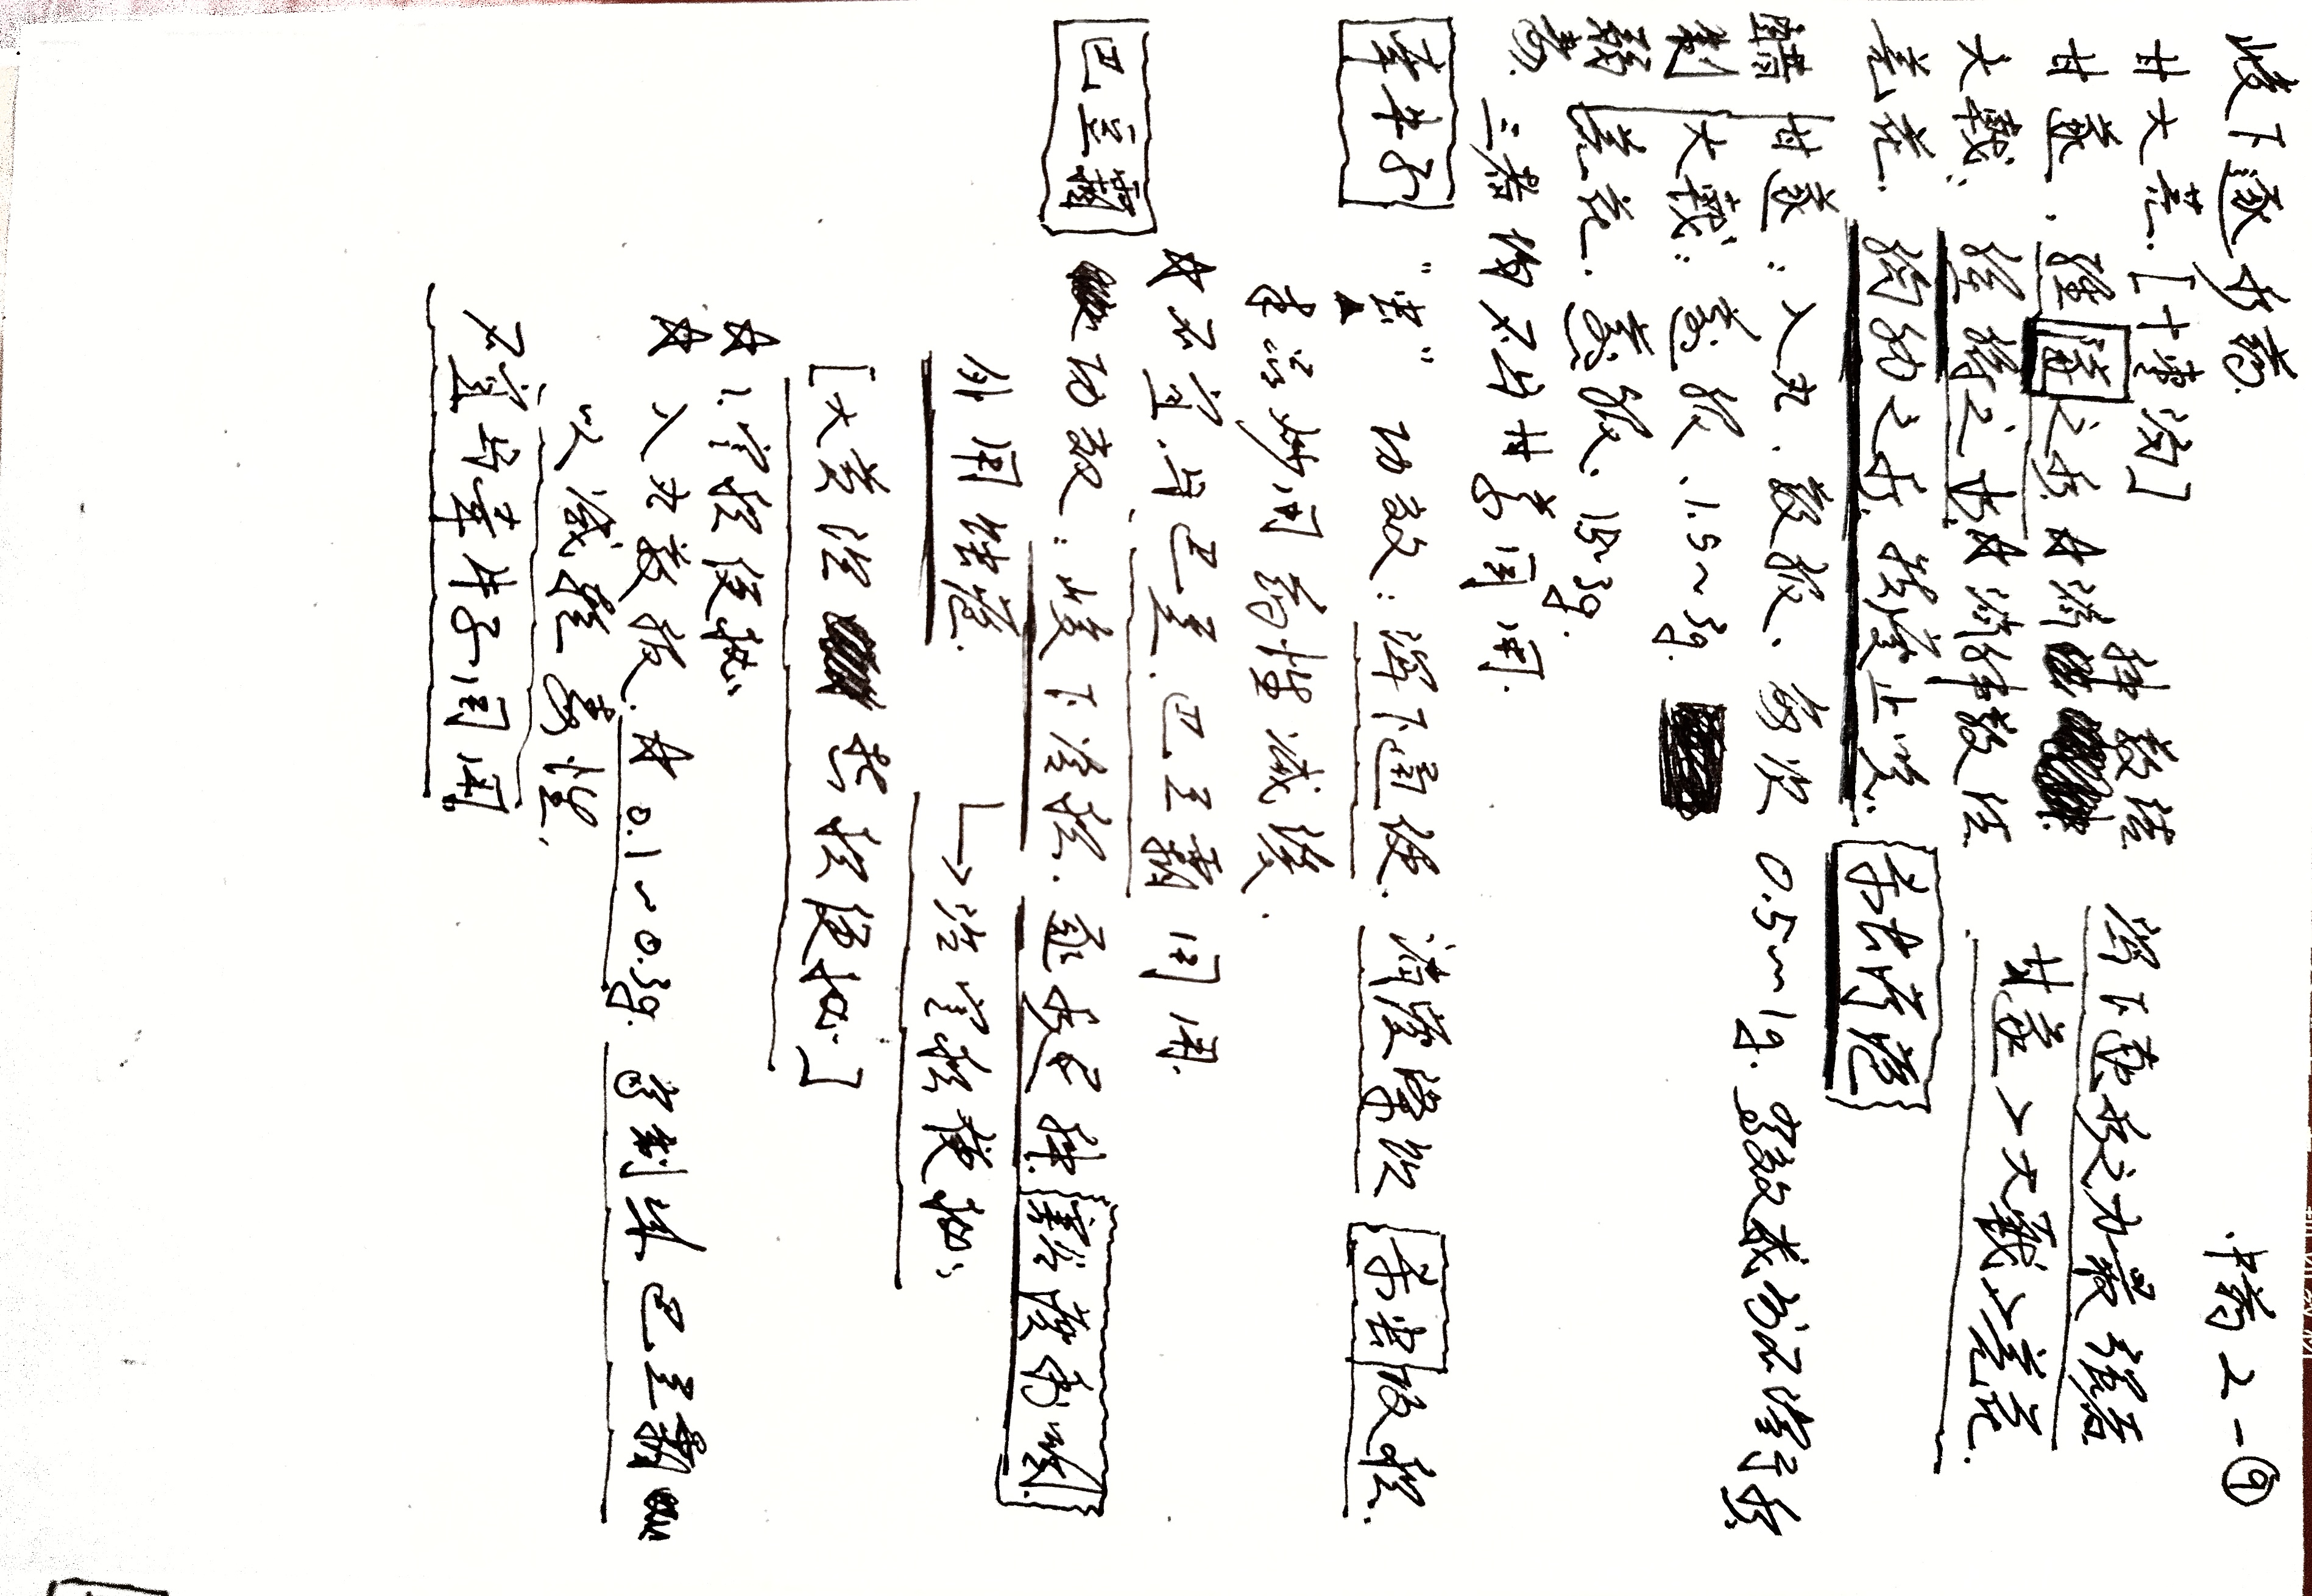 峻下逐水药. 中药2-⑨
甘大芫.[十枣汤]
甘遂. 经隧之水 ☆消肿散结 泻下逐水之力最强
大戟. ☆消肿散结 甘遂>大戟>芫花
芫花. 之水. 祛痰止咳. 杀虫疗疮
醋制 甘遂: 入丸、散服、每次0.5~1g.
大戟: 煮服、1.5~3g.
芫花. 煮服、1.5~3g.
三者均不与甘草同用.
牵牛子 "苦" 功效: 泻下通便. 消痰涤饮 杀虫攻积.
☆不宜与巴豆.巴豆霜同用.
巴豆霜 功效: 峻下冷积. 逐水退肿. 豁痰利咽.
外用蚀疮. 
→治寒积便秘
[大黄治热积便秘]
☆1.寒积便秘
☆入丸散服. ☆0.1~0.3g. 巴豆霜
以减毒性.
不宜与牵牛子同用